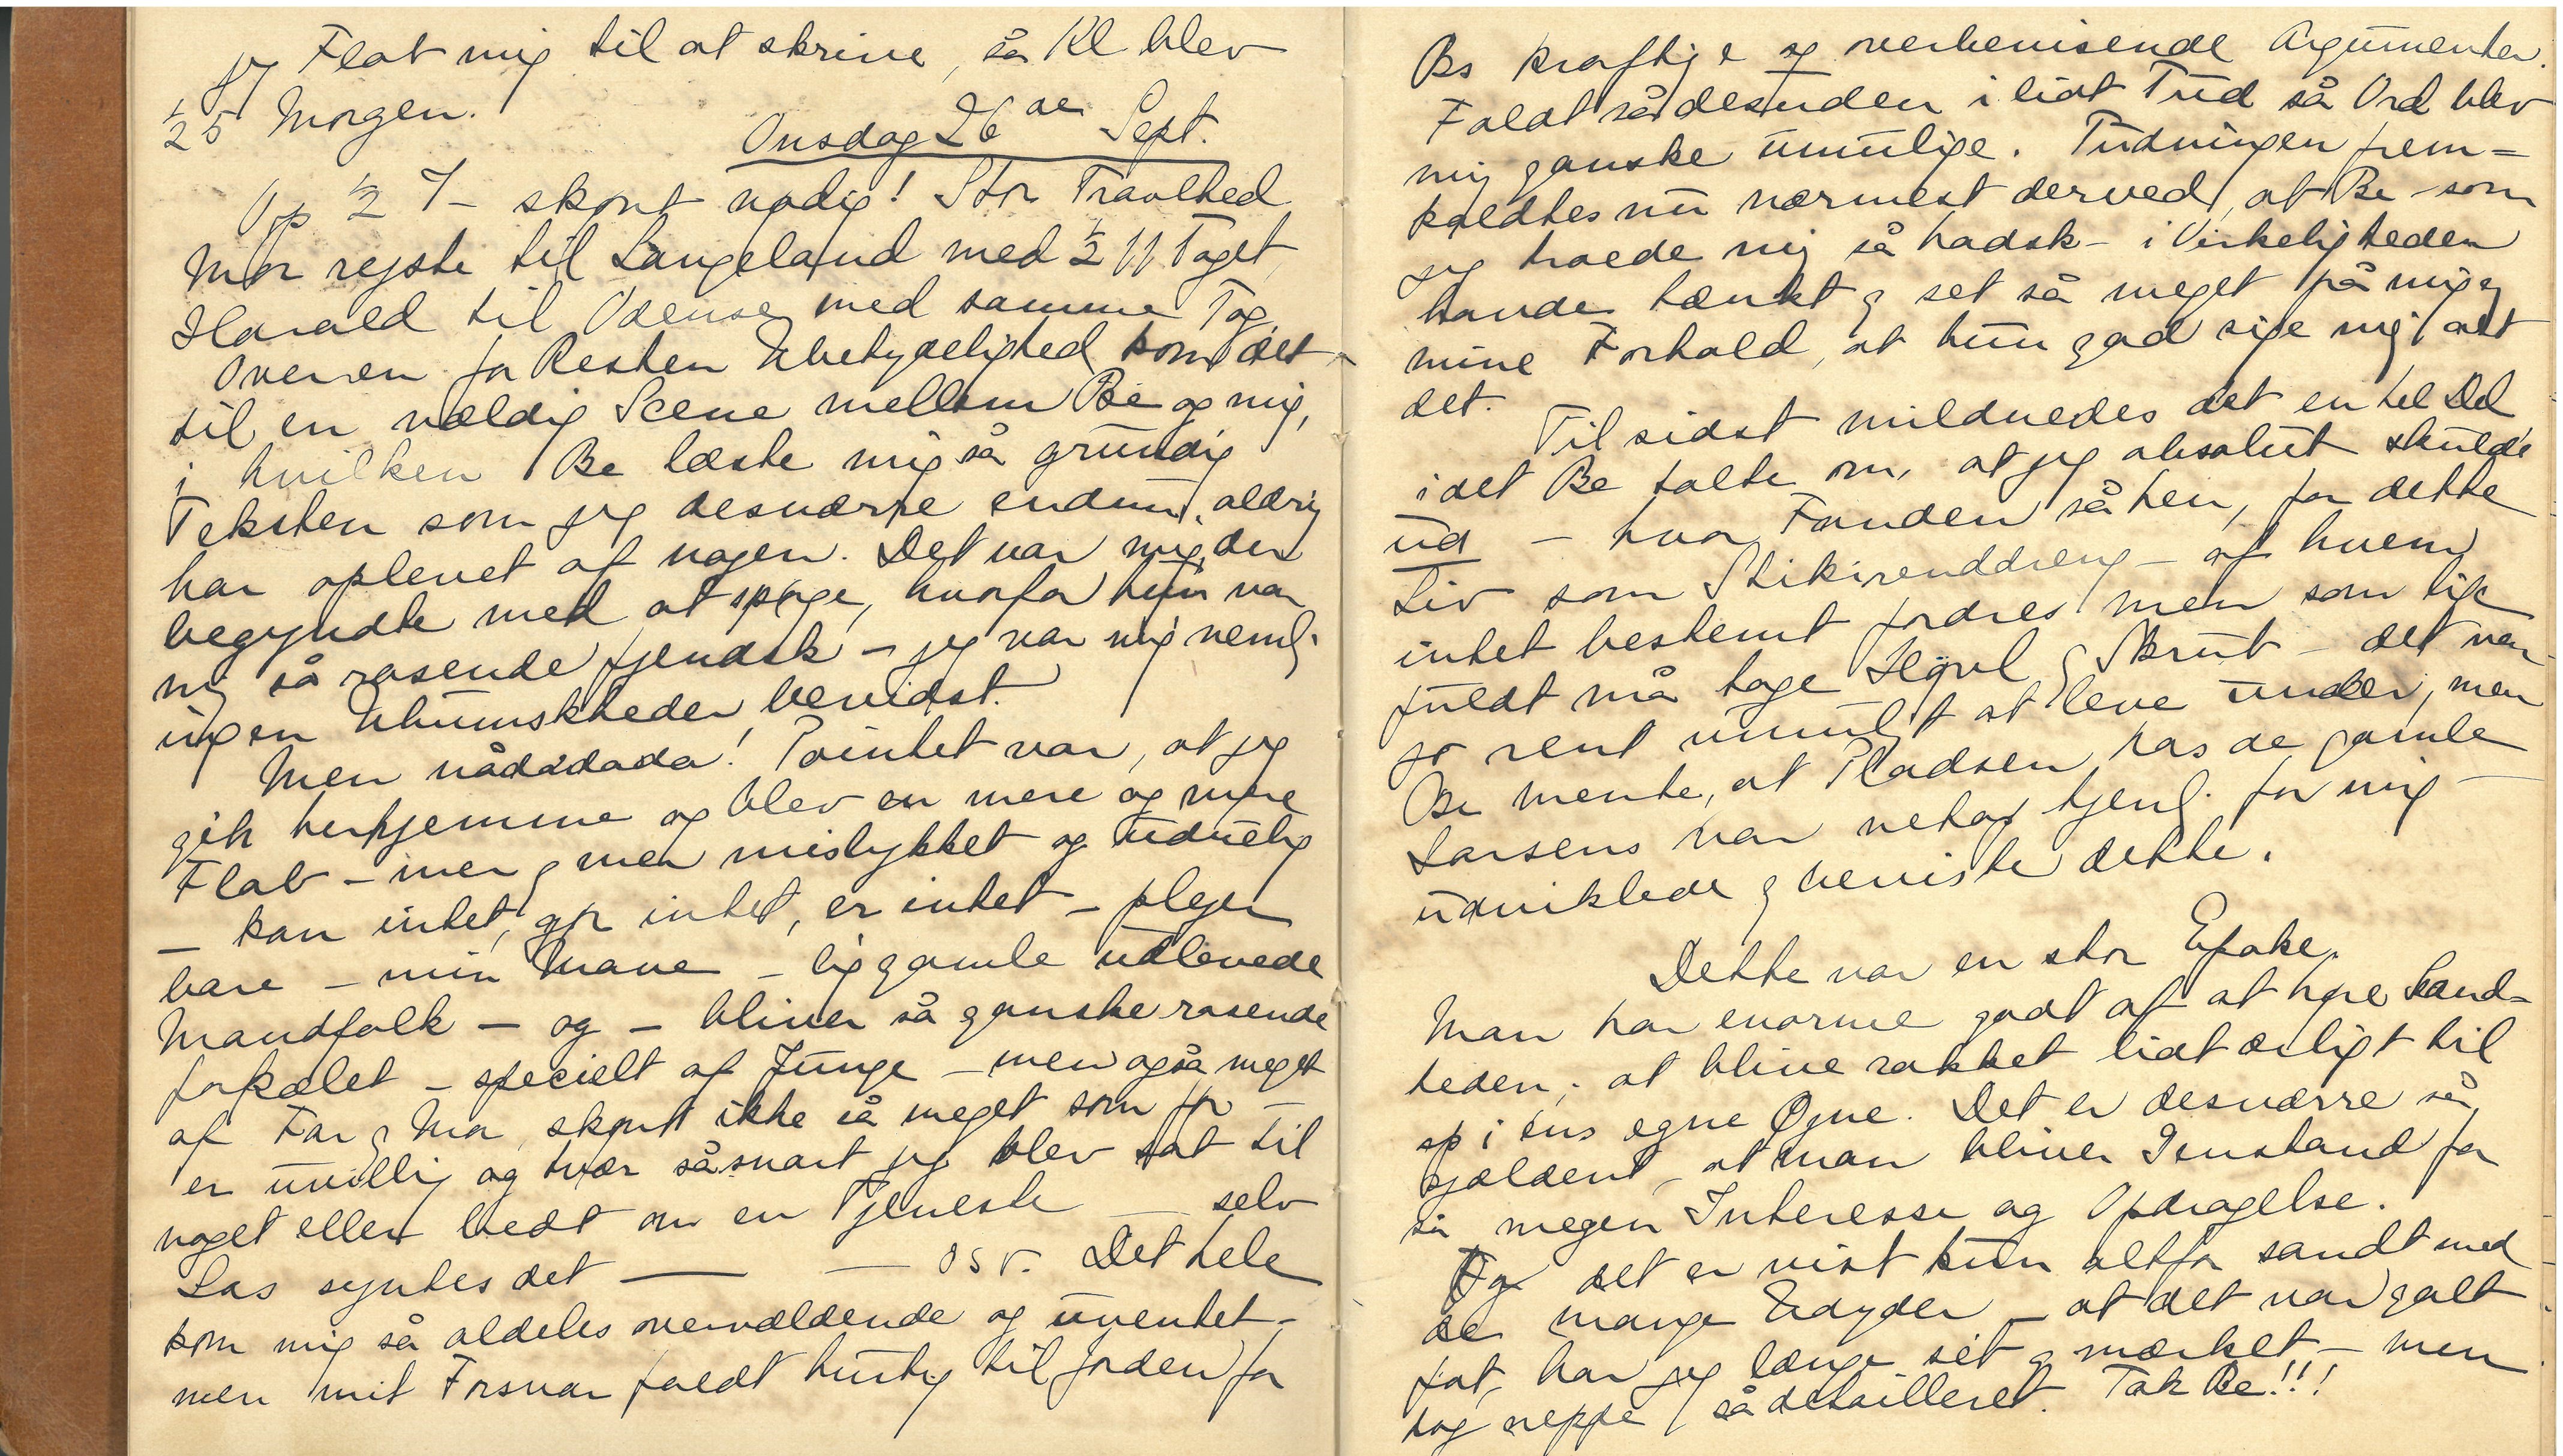 jeg Flab mig til at skrive, så Kl blev
½5 Morgen.
Onsdag 26de Sept.
Op ½ 7 – skønt nødig! Stor Travlhed
Mor rejste til Langeland med ½ 11 Toget,
Harald til Odense med samme Tog
Over en for Resten Ubetydelighed kom det
til en vældig Scene mellem Be og mig,
i hvilken Be læste mig så grundig
Teksten som jeg desværre endnu aldrig
har oplevet af nogen. Det var mig, der
begyndte med at spørge, hvorfor hun var
mig så rasende fjendsk – jeg var mig neml.
ingen Uhumskheder bevidst.
Men nådadada! Pointet var, at jeg
gik herhjemme og blev en mere og mere
Flab – mer og mer mislykket og uduelig
– kan intet, gør intet, er intet – plejer
bare – min Mave – lig gamle udlevede
Mandfolk – og – bliver så ganske rasende
forkælet – specielt af Junge – men også meget
af Far og Mor, skønt ikke så meget som før –
er uvillig og tvær såsnart jeg blev sat til
noget eller bedt om en Tjeneste — selv
Las syntes det — — osv. Det hele
kom mig så aldeles overvældende og uventet –
men mit Forsvar faldt hurtig til Jorden for
Bs kraftige og overbevisende Argumenter.
Faldt så desuden i lidt Tud så Ord blev
mig ganske umulige. Tudningen frem=
kaldtes nu nærmest derved, at Be – som
jeg troede mig så hadsk – i Virkeligheden
havde tænkt og set så meget på mig og
mine Forhold, at hun gad sige mig alt
det.
Til sidst mildnedes det en hel Del
idet Be talte om, at jeg absolut skulde
ud – hvor Fanden så hen, for dette
Liv som Stikirenddreng – af hvem
intet bestemt fordres men som lige
fuldt må tage Hövl og Skrub – det var
jo rent umuligt at leve under, men
Be mente, at Pladsen hos de gamle
Larsens var netop tjenl. for mig –
udviklede og beviste dette.
Dette var en stor Epoke.
Man har enorme godt af at høre Sand=
heden; at blive rakket lidt ærligt til
op i éns egne Øjne. Det er desværre så
sjældent, at man bliver Genstand for
så megen Interesse og Opdragelse.
Og det er vist kun altfor sandt med
de mange Udyder – at det var galt
fat, har jeg længe sét og mærket – men
dog neppe så detailleret. Tak Be!!!